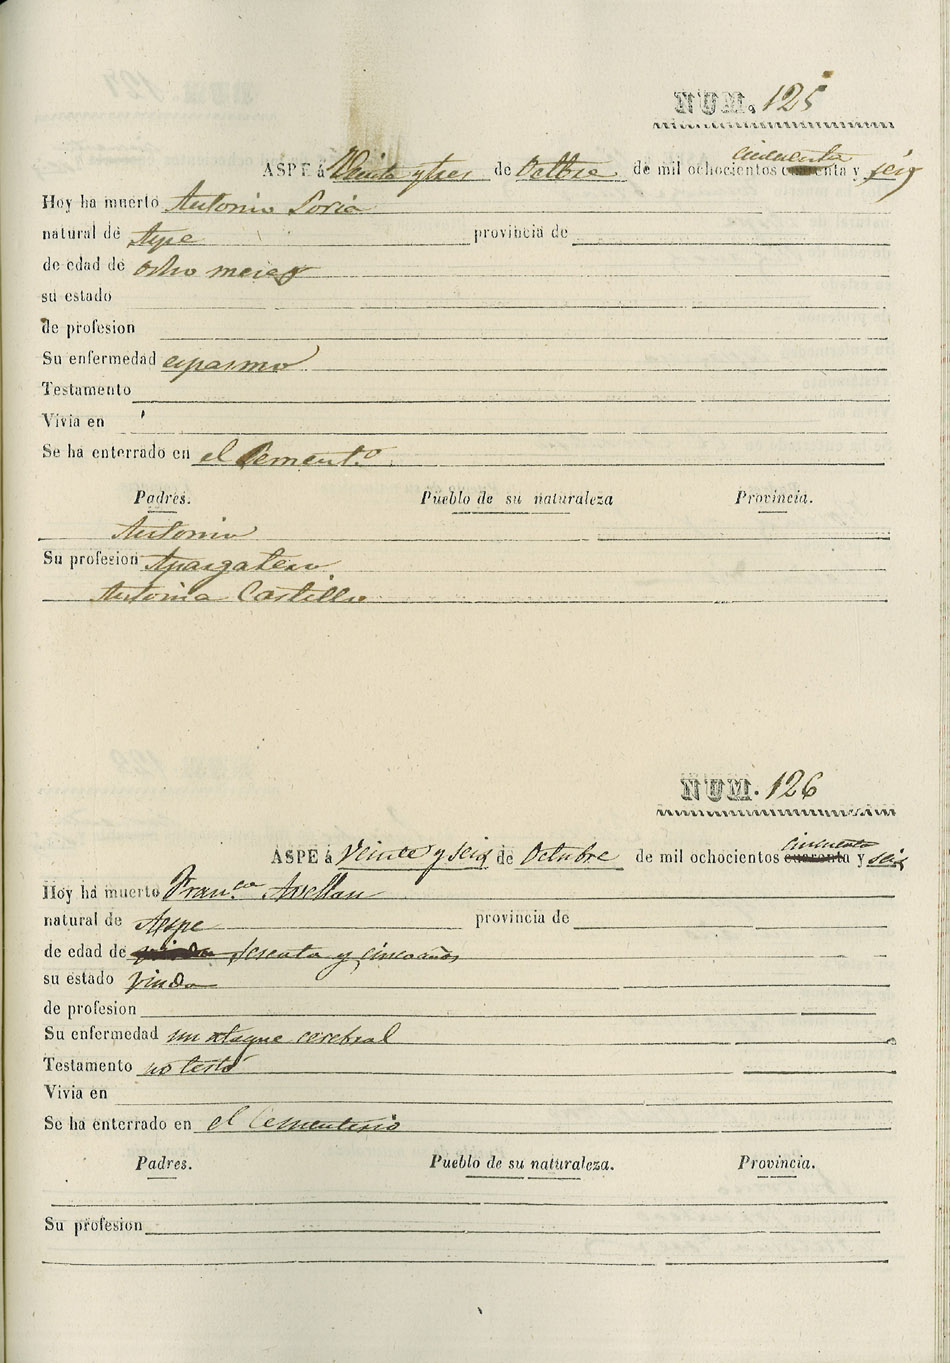 NUM. 125
ASPE á Veinte y tres de Octbre de mil ochocientos cincuenta cuarenta y seis
Hoy ha muerto Antonio Soria
natural de Aspe provincia de
de edad de ocho meses
su estado
de profesion
Su enfermedad espasmo
Testamento
Vivia en
Se ha enterrado en el Cement.º
Padres. Pueblo de su naturaleza Provincia.
Antonio
Su profesion Alpargatero
Antonia Castillo
NUM. 126
ASPE á Veinte y seis de Octubre de mil ochocientos cincuenta cuarenta y seis
Hoy ha muerto Fran.co Avellan
natural de Aspe provincia de
de edad de viudo sesenta y cinco años
su estado viudo
de profesion
Su enfermedad un ataque cerebral
Testamento no testó
Vivia en
Se ha enterrado en el Cementerio
Padres. Pueblo de su naturaleza. Provincia.
Su profesion